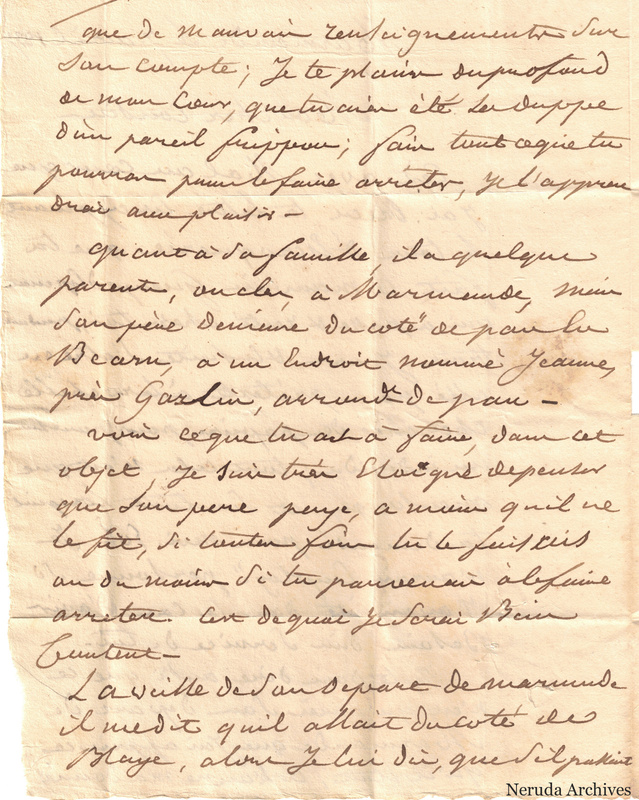 que de mauvais renseignements sur
son compte; Je te plains du profond
de mon Cœur, que tu aies été la duppe
d'un pareil frippon; fais tout ce que tu
pourras pour le faire arrêter, Je l'appren
drai avec plaisir —
quant à sa famille, il a quelque
parents, oncles, à Marmande, mais
son père demeure du coté de pau en
Bearn, à un Endroit nommé Jeanne,
près Gazlin, arrondt de pau —
vois ce que tu as à faire, dans cet
objet, Je suis très Eloigné de penser
que son pere paye, a moins qu'il ne
le fit, si toutes fois tu le
ou du moins si tu parvenais à le faire
arreter. C'est de quoi Je serai Bien
Content —
La veille de son depart de marmande
il me dit qu'il allait du coté de
Blaye, alors Je lui dis, que s'il passait
Neruda Archives